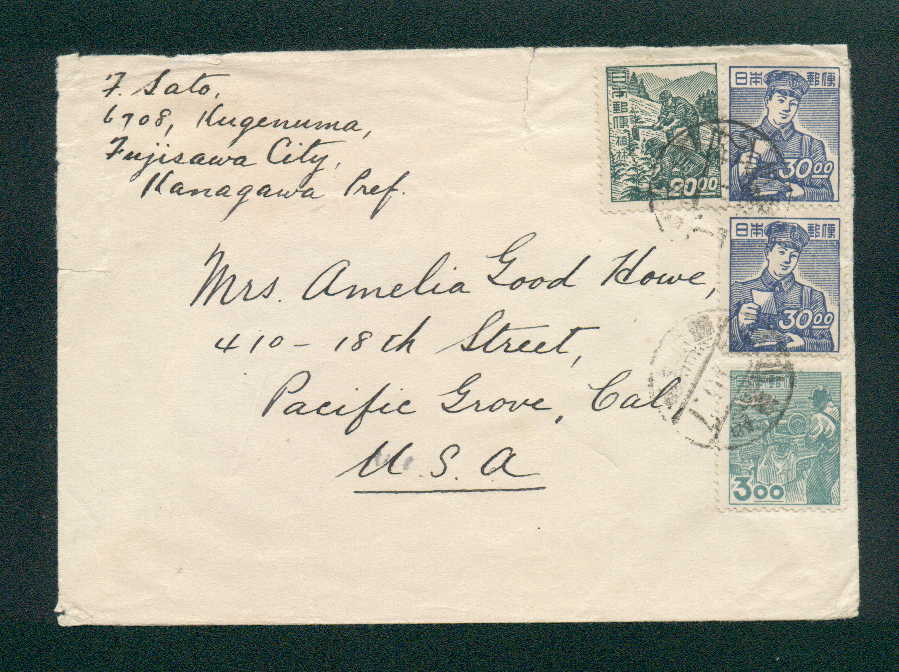 F. Sato,
6708, Kugenuma,
Fujisawa City,
Kanagawa Pref.
Mrs. Amelia Good Howe,
410 - 18th Street,
Pacific Grove, Cal.
U.S.A
日本郵便
20.00
日本郵便
30.00
日本郵便
30.00
3.00